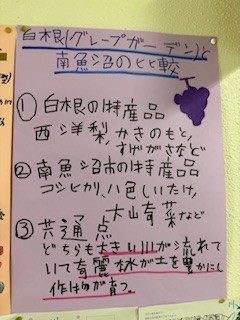 白根グレープガーデンと
南魚沼の比較
①白根の特産品
西洋梨、かきのもと、
すげがさなど
②南魚沼市の特産品
コシヒカリ、八色しいたけ、
大山有菜など
③共通点
どちらも大きい川が流れて
いて
水が土を豊かにし
作物が育つ。